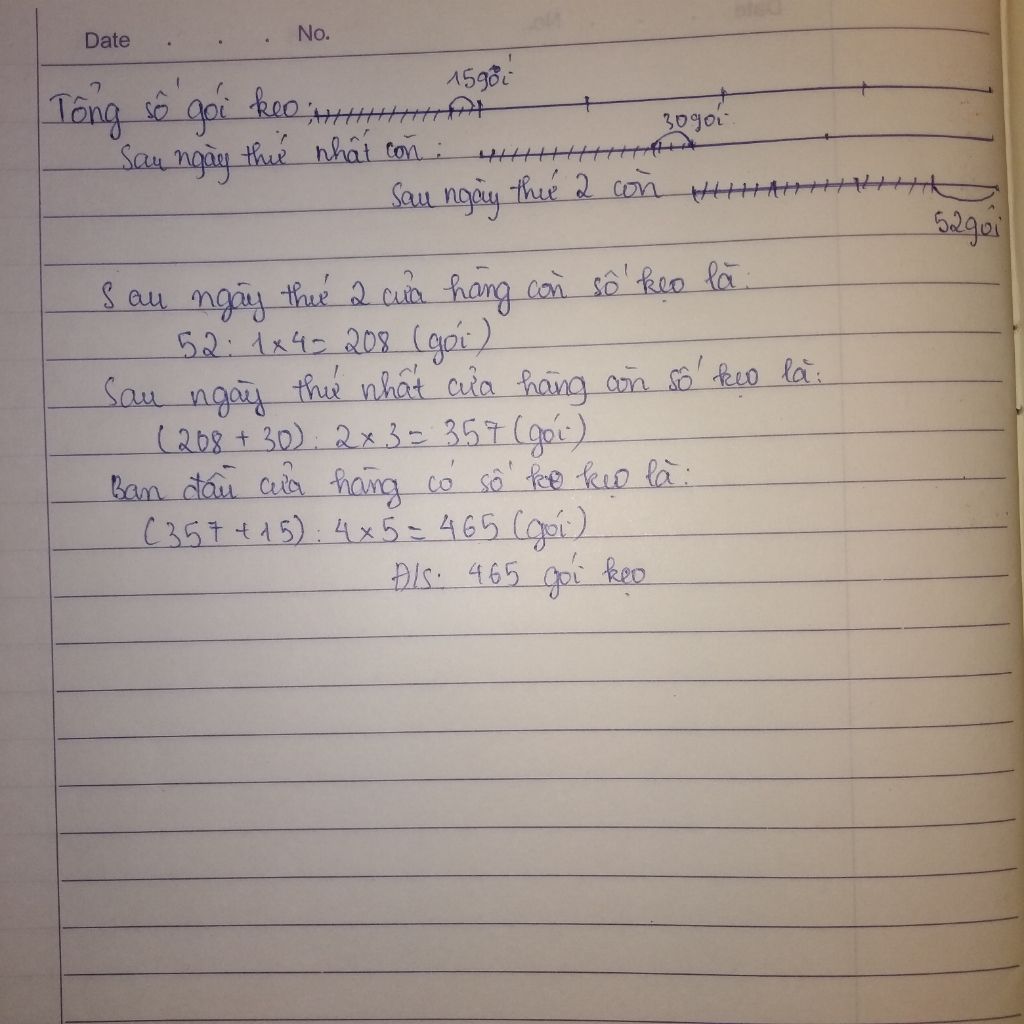 Date . . . No.
15 gói
Tổng số gói kẹo:
30 gói
Sau ngày thứ nhất còn:
Sau ngày thứ 2 còn
52 gói
Sau ngày thứ 2 cửa hàng còn số kẹo là:
52 : 1 x 4 = 208 (gói)
Sau ngày thứ nhất cửa hàng còn số kẹo là:
(208 + 30) : 2 x 3 = 357 (gói)
Ban đầu cửa hàng có số kẹo kẹo là:
(357 + 15) : 4 x 5 = 465 (gói)
Đ/S: 465 gói kẹo